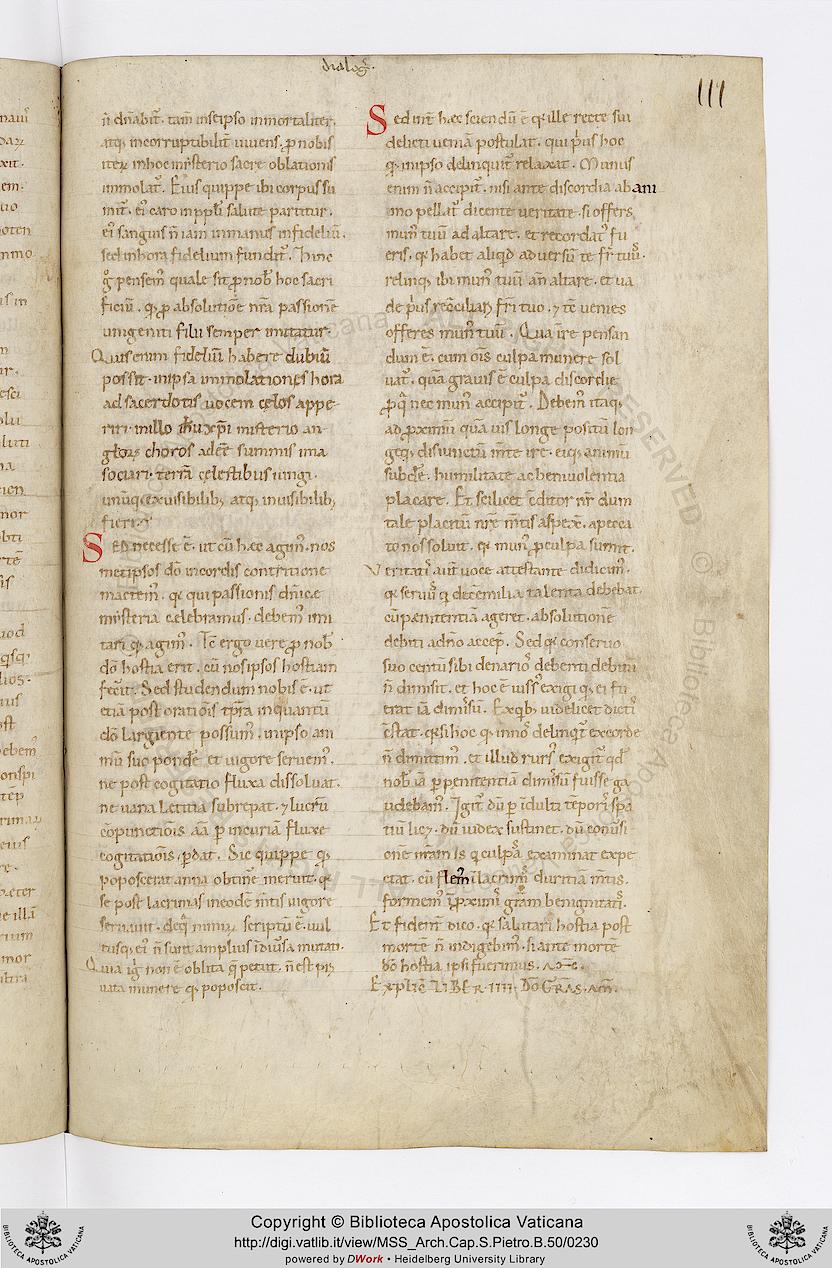 dialog̅.
111
n̄ dn̄abit᷑. tam̄ inseipso inmortaliter.
atq; incorruptibilit᷑ uiuens. ꝓ nobis
iteꝝ inhoc misterio sacre oblationis
immolat᷑. Eius quippe ibi corpus su
mit᷑. ei᷒ caro inpp̄li salute partitur.
ei᷒ sanguis n̄ iam inmanus infideliū.
sed inhora fidelium fundit᷑. Hinc
g̊ pensem᷒ quale sit ꝓ nob᷒ hoc sacri
ficiū. q; ꝓ absolutiōe nr̄a passionē
unigeniti filii semper imitatur.
Quis enim fideliū habere dubiū
possit. inipsa immolationes hora
ad sacerdotis uocem cęlos appe
riri. inillo ih̄u xp̄i misterio an
gloꝝ choros adeē summis ima
sociari. terrā cęlestibus iungi.
unūq; exuisibilib; atq; inuisibilib;
fieri.
SED necesse ē. ut cū hæc agim᷒. nos
metipsos dō incordis contritione
mactem᷒. q̄ qui passionis dn̄icę
misteria celebramus. debem᷒ imi
tari q; agim᷒. Tc̄ ergo uere ꝓ nob᷒
dō hostia erit. cū nosipsos hostiam
fecit᷑. Sed studendum nobis ē. ut
etiā post oratiōis tp̄ra inquantū
dō largiente possum᷒. inipso ani
mū suo ponde᷑. et uigore seruem᷒.
ne post cogitatio fluxa dissoluat.
ne uana letitia subrepat. ⁊ lucrū
cōpunctiōis aīa ꝑ incuriā fluxe
cogitatiōis ꝑdat. Sic quippe q;
poposcerat anna obtinē meruit. q̄
se post lacrimas ineodē m̄tis uigore
seruauit. deq̄ nimiꝝ scriptū ē. uul
tusq; ei᷒ n̄ sunt amplius ī diu̓sa mutati.
Quia ig᷑ non ē oblita q̄ petiit. n̄ est pri
uata munere q; poposcit.
Sed int᷑ hæc sciendū ē q̄ ille recte sui
delicti ueniā postulat. qui p᷒us hoc
q; inipso delinquit᷑ relaxat. Munus
enim n̄ accipit᷑. nisi ante discordia ab ani
mo pellat᷑ dicente ueritate. si offers
mun᷒ tuū ad altare. et recordat᷒ fu
eris. q; habet aliqd̓ aduersū te fr̄ tuus᷒.
relinq; ibi mun᷒ tuū an̄ altare. et ua
de p᷒us recōciliari fr̄i tuo. ⁊ tc̄ uenies
offeres mun᷒ tuū. Qua ī re pensan
dum ē. cum oīs culpa munere sol
uat᷑. quā grauis ē culpa discordie.
ꝓ q̄ nec mun᷒ accipit᷑. Debem᷒ itaq;
ad ꝓximū quā uis longe positū lon
geq; disiunctū m̄te ire. eiq; animū
subde᷑. humilitate ac beniuolentia
placare. Et scilicet c̄ditor nr̄ dum
tale placitū nr̄e m̄tis aspexe᷑. a pecca
to nos soluit. q̄ mun᷒ ꝓ culpa sumit.
Veritati᷒ aut᷑ uoce attestante didicim᷒.
q̄ seruu᷒ q̄ decemilia talenta debebat.
cū pęnitentiā ageret. absolutionē
debiti adn̄o accep᷑. Sed q̄ conseruo
suo centū sibi denario᷒ debenti debitū
n̄ dimisit. et hoc ē iuss᷒ exigi q; ei fu
erat iā dimissū. Exquib; uidelicet dicti᷒
c̄stat. q̄ si hoc q; innos᷒ delinqt̓ excorde
n̄ dimittim᷒. et illud rurs᷒ exigit᷑ qd̓
nob᷒ iā ꝑ pęnitentiā dimissū fuisse ga
udebam᷒. Igit᷑ dū ꝑ īdulti tēpori᷒ spa
tiū licȝ. dū iudex sustinet. dū conuersi
onē nr̄am is q̄ culpas᷒ examinat expe
ctat. cū flem᷒ ī lacrimis᷒ duritiā m̄tis.
formem᷒ ī ꝓximis᷒ gr̄am benignitatis᷒.
Et fident᷑ dico. q̄ salutari hostia post
mortē n̄ indigebim᷒. si ante mortē
dō hostia ipsi fuerimus. AM̄.
Explic̄ LIBER. IIII. DŌ GRAS. AM̄.
Copyright © Biblioteca Apostolica Vaticana
http://digi.vatlib.it/view/MSS_Arch.Cap.S.Pietro.B.50/0230
powered by DWork • Heidelberg University Library